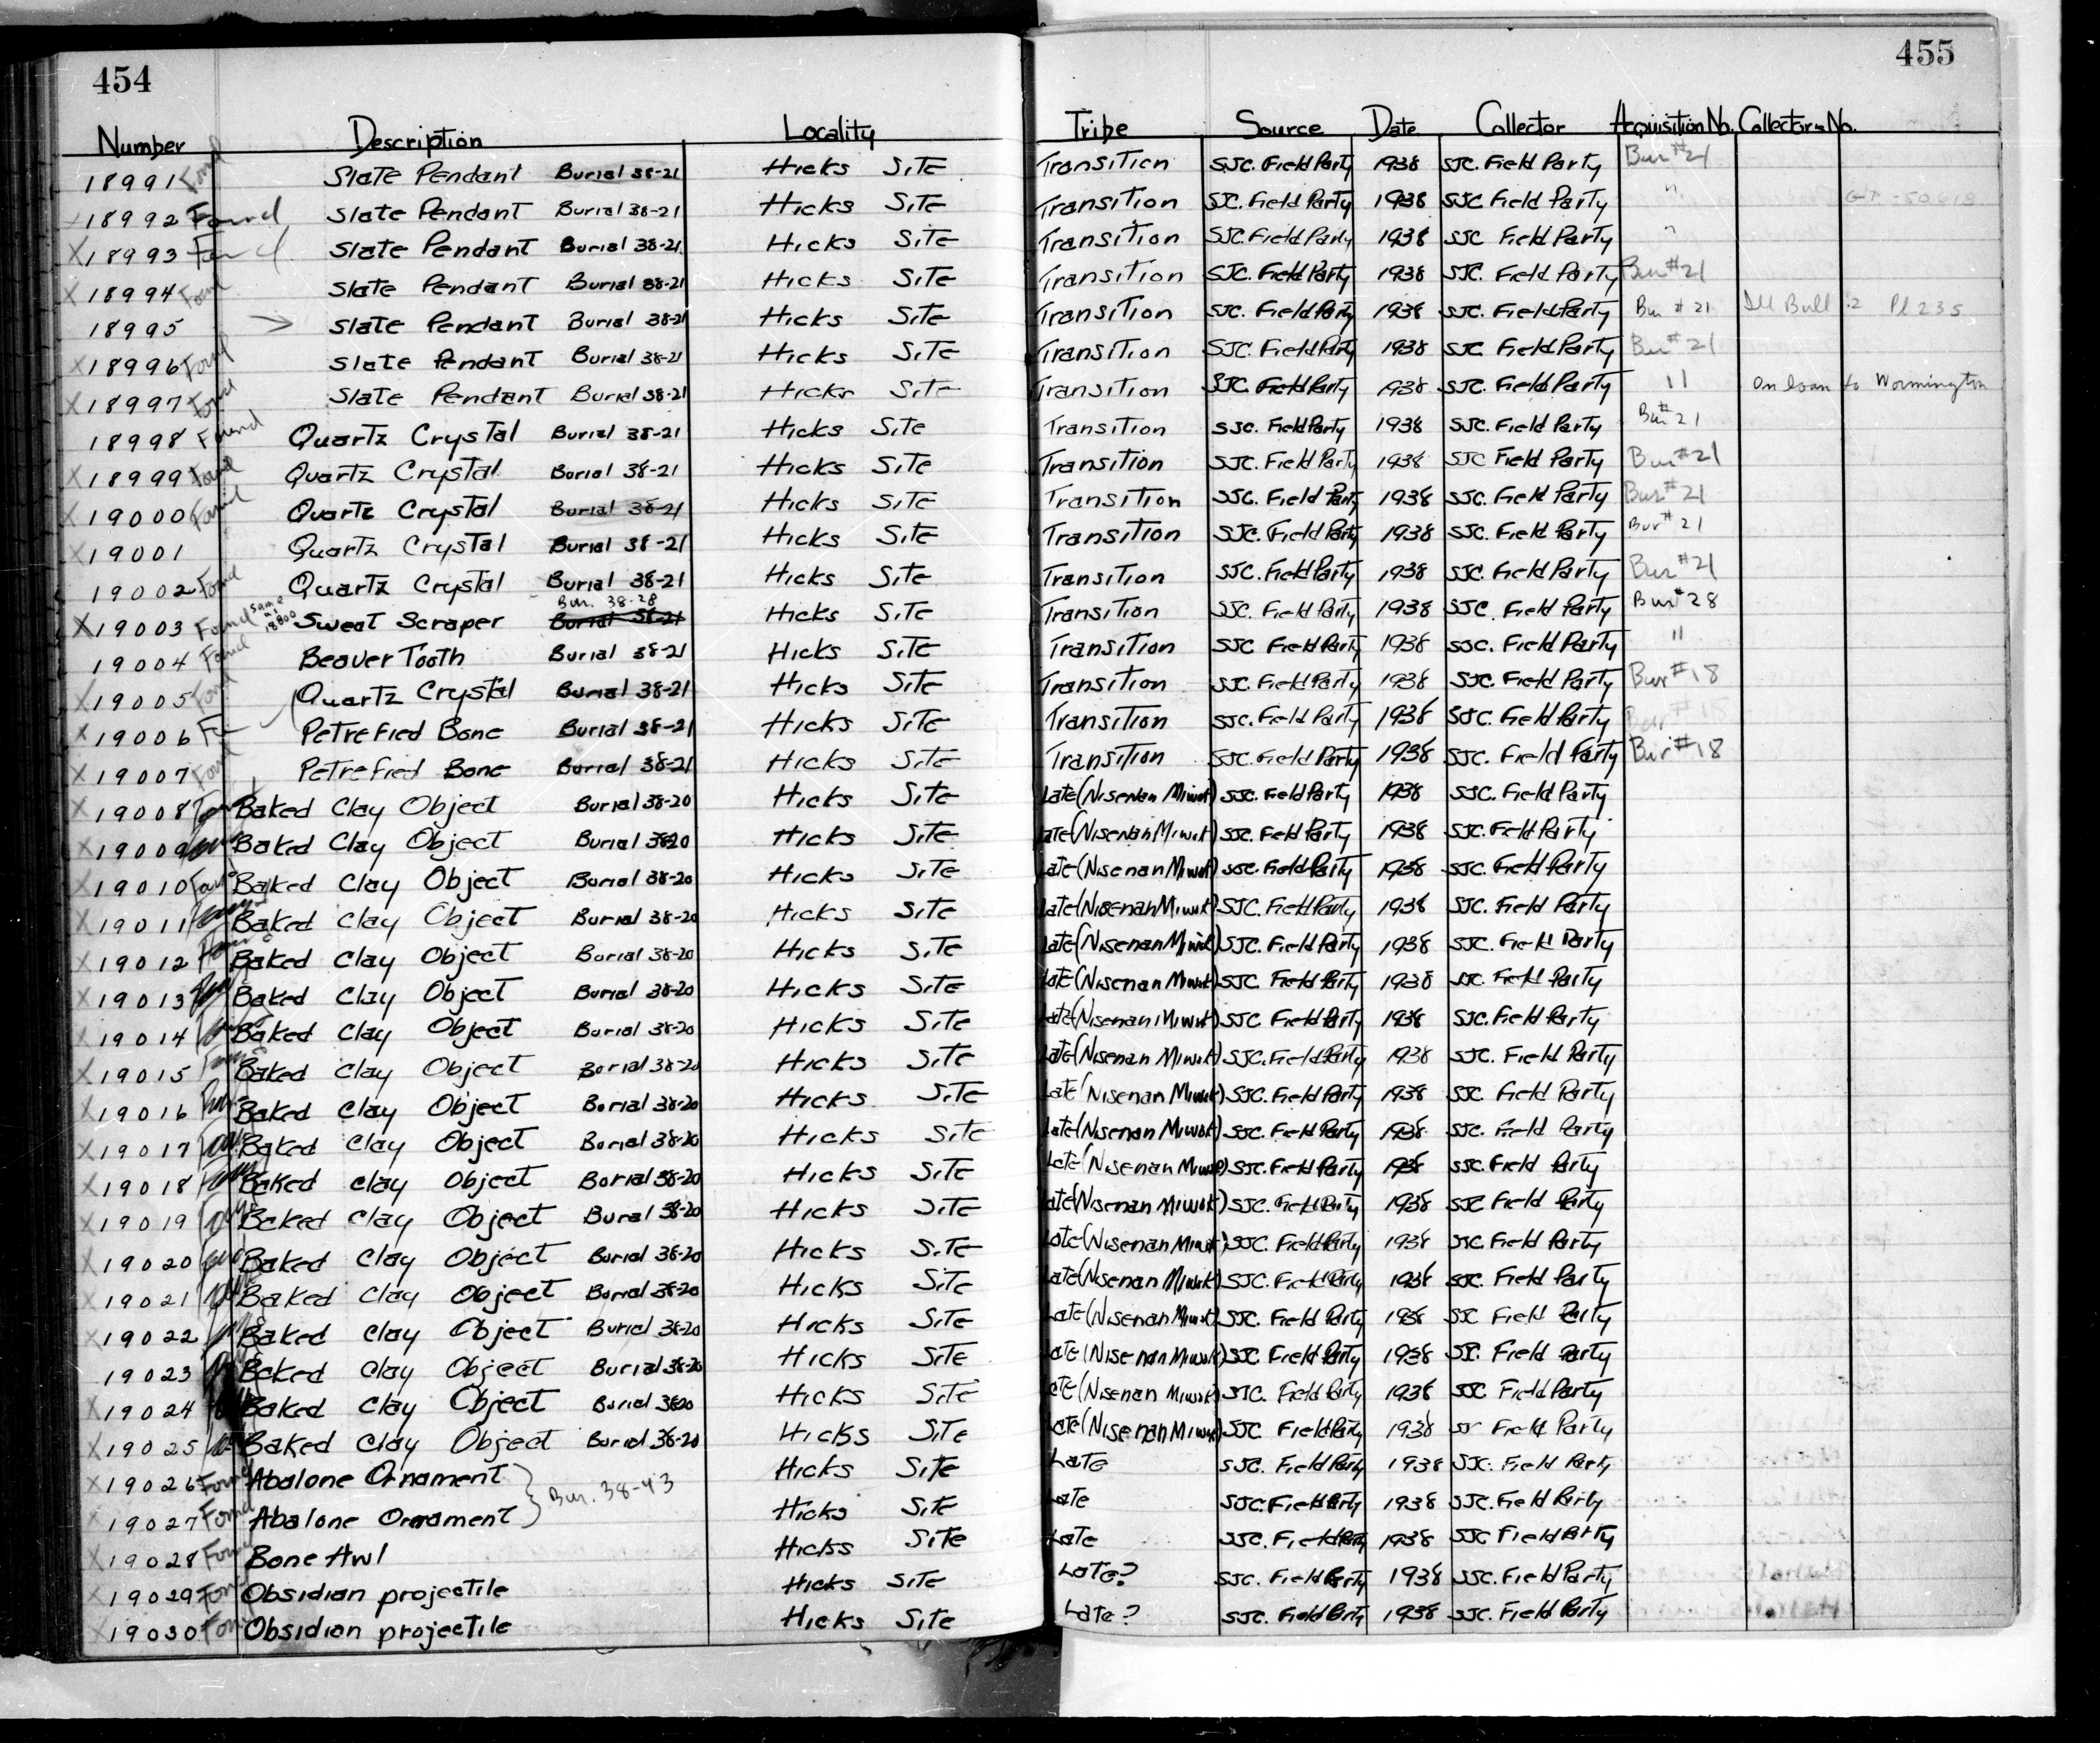 454
455
Number Description Locality Tribe Source Date Collector Acquisition No. Collectors No.
18991 Found Slate Pendant Burial 38-21 Hicks Site Transition SJC. Field Party 1938 SJC. Field Party Bur #21
18992 Found Slate Pendant Burial 38-21 Hicks Site Transition SJC. Field Party 1938 SJC Field Party "
X18993 Found Slate Pendant Burial 38-21 Hicks Site Transition SJC. Field Party 1938 SJC Field Party "
X18994 Found Slate Pendant Burial 38-21 Hicks Site Transition SJC. Field Party 1938 SJC. Field Party Bur #21
18995 > Slate Pendant Burial 38-21 Hicks Site Transition SJC. Field Party 1938 SJC. Field Party Bur #21 Ill Bull 2 Pl 235
X18996 Found Slate Pendant Burial 38-21 Hicks Site Transition SJC. Field Party 1938 SJC Field Party Bur #21
X18997 Found Slate Pendant Burial 38-21 Hicks Site Transition SJC. Field Party 1938 SJC. Field Party " On loan to Wormington
18998 Found Quartz Crystal Burial 38-21 Hicks Site Transition SJC. Field Party 1938 SJC. Field Party Bur #21
X18999 Found Quartz Crystal Burial 38-21 Hicks Site Transition SJC. Field Party 1938 SJC Field Party Bur #21
X19000 Found Quartz Crystal Burial 38-21 Hicks Site Transition SJC. Field Party 1938 SJC. Field Party Bur #21
X19001 Quartz Crystal Burial 38-21 Hicks Site Transition SJC. Field Party 1938 SJC. Field Party Bur #21
19002 Found Quartz Crystal Burial 38-21 Hicks Site Transition SJC. Field Party 1938 SJC. Field Party Bur #21
X19003 Found same as 18800 Sweat Scraper Burial 38-21 Bur. 38-28 Hicks Site Transition SJC Field Party 1938 SJC. Field Party Bur #28
19004 Found Beaver Tooth Burial 38-21 Hicks Site Transition SJC Field Party 1938 SJC. Field Party "
X19005 Found Quartz Crystal Burial 38-21 Hicks Site Transition SJC. Field Party 1938 SJC. Field Party Bur #18
X19006 Petrefied Bone Burial 38-21 Hicks Site Transition SJC. Field Party 1938 SJC. Field Party Bur #18
X19007 Found Petrefied Bone Burial 38-21 Hicks Site Transition SJC. Field Party 1938 SJC. Field Party Bur #18
X19008 Baked Clay Object Burial 38-20 Hicks Site Late (Nisenan Miwok) SJC. Field Party 1938 SJC. Field Party
X19009 Baked Clay Object Burial 38-20 Hicks Site Late (Nisenan Miwok) SJC. Field Party 1938 SJC. Field Party
X19010 Found Baked Clay Object Burial 38-20 Hicks Site Late (Nisenan Miwok) SJC. Field Party 1938 SJC. Field Party
X19011 Baked Clay Object Burial 38-20 Hicks Site Late (Nisenan Miwok) SJC. Field Party 1938 SJC. Field Party
X19012 Baked Clay Object Burial 38-20 Hicks Site Late (Nisenan Miwok) SJC. Field Party 1938 SJC. Field Party
X19013 Baked Clay Object Burial 38-20 Hicks Site Late (Nisenan Miwok) SJC. Field Party 1938 SJC. Field Party
X19014 Baked Clay Object Burial 38-20 Hicks Site Late (Nisenan Miwok) SJC Field Party 1938 SJC. Field Party
X19015 Baked Clay Object Burial 38-20 Hicks Site Late (Nisenan Miwok) SJC. Field Party 1938 SJC. Field Party
X19016 Baked Clay Object Burial 38-20 Hicks Site Late (Nisenan Miwok) SJC. Field Party 1938 SJC. Field Party
X19017 Baked Clay Object Burial 38-20 Hicks Site Late (Nisenan Miwok) SJC. Field Party 1938 SJC. Field Party
X19018 Baked Clay Object Burial 38-20 Hicks Site Late (Nisenan Miwok) SJC. Field Party 1938 SJC. Field Party
X19019 Baked Clay Object Burial 38-20 Hicks Site Late (Nisenan Miwok) SJC. Field Party 1938 SJC Field Party
X19020 Baked Clay Object Burial 38-20 Hicks Site Late (Nisenan Miwok) SJC. Field Party 1938 SJC Field Party
X19021 Baked Clay Object Burial 38-20 Hicks Site Late (Nisenan Miwok) SJC. Field Party 1938 SJC. Field Party
X19022 Baked Clay Object Burial 38-20 Hicks Site Late (Nisenan Miwok) SJC. Field Party 1938 SJC Field Party
19023 Baked Clay Object Burial 38-20 Hicks Site Late (Nisenan Miwok) SJC Field Party 1938 SJC. Field Party
X19024 Baked Clay Object Burial 38-20 Hicks Site Late (Nisenan Miwok) SJC. Field Party 1938 SJC Field Party
X19025 Baked Clay Object Burial 38-20 Hicks Site Late (Nisenan Miwok) SJC Field Party 1938 SJC Field Party
X19026 Found Abalone Ornament } Bur. 38-43 Hicks Site Late SJC. Field Party 1938 SJC. Field Party
X19027 Found Abalone Ornament } Hicks Site Late SJC. Field Party 1938 SJC. Field Party
X19028 Found Bone Awl Hicks Site Late SJC. Field Party 1938 SJC Field Party
X19029 Found Obsidian projectile Hicks Site Late? SJC. Field Party 1938 SJC. Field Party
X19030 Found Obsidian projectile Hicks Site Late? SJC. Field Party 1938 SJC. Field Party